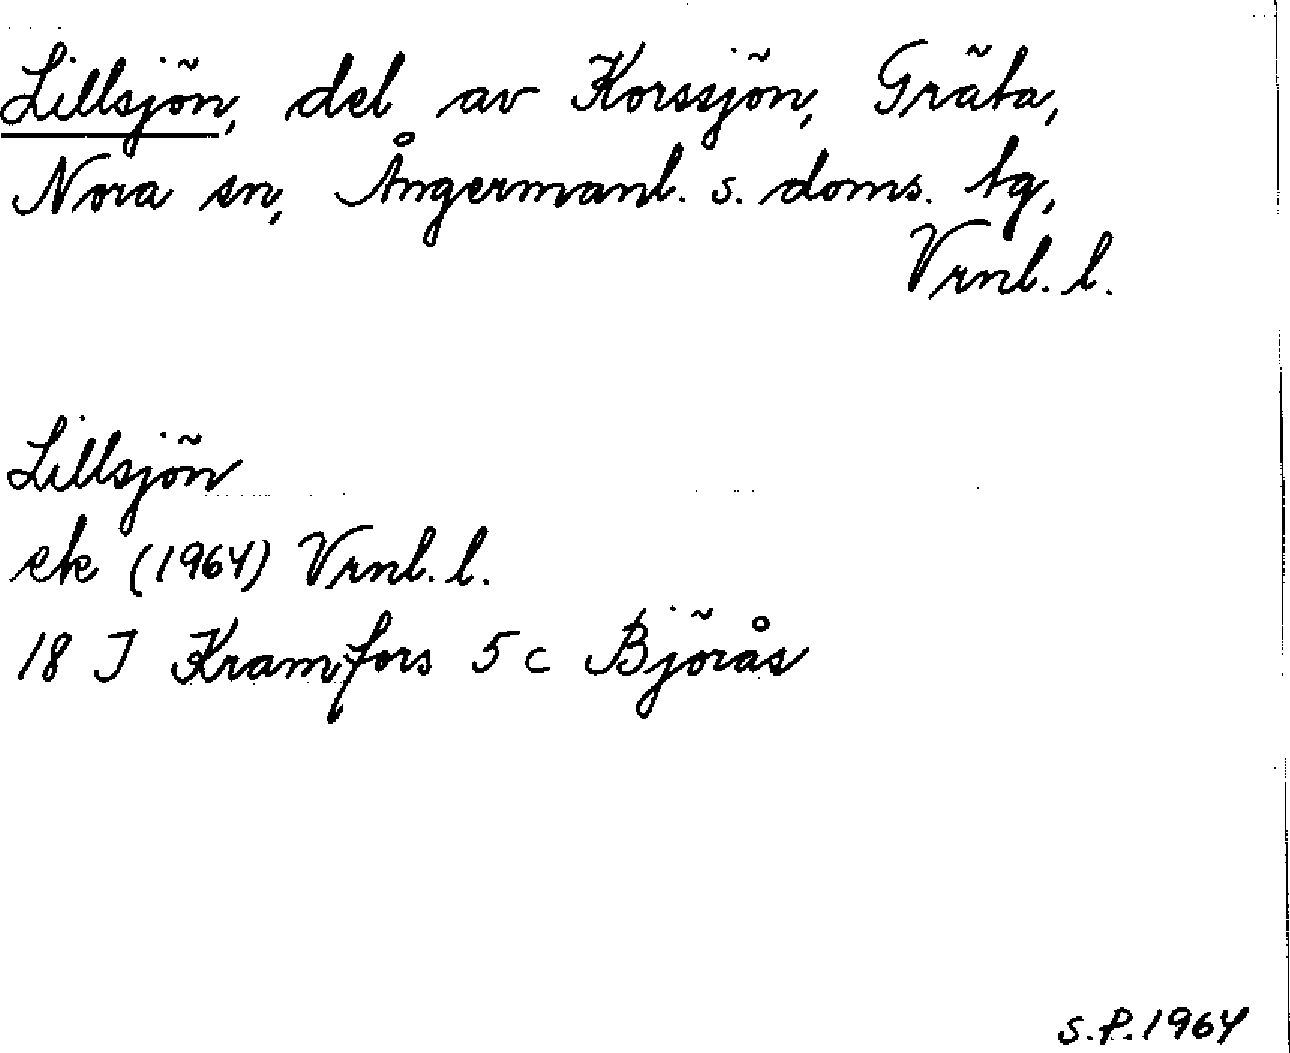 Lillsjön, del av Korssjön, Gräta,
Nora sn, Ångermanl. s. doms. tg,
Vrnl. l.
Lillsjön
ek (1964) Vrnl. l.
18 I Kramfors 5 c Björås
S.P. 1964